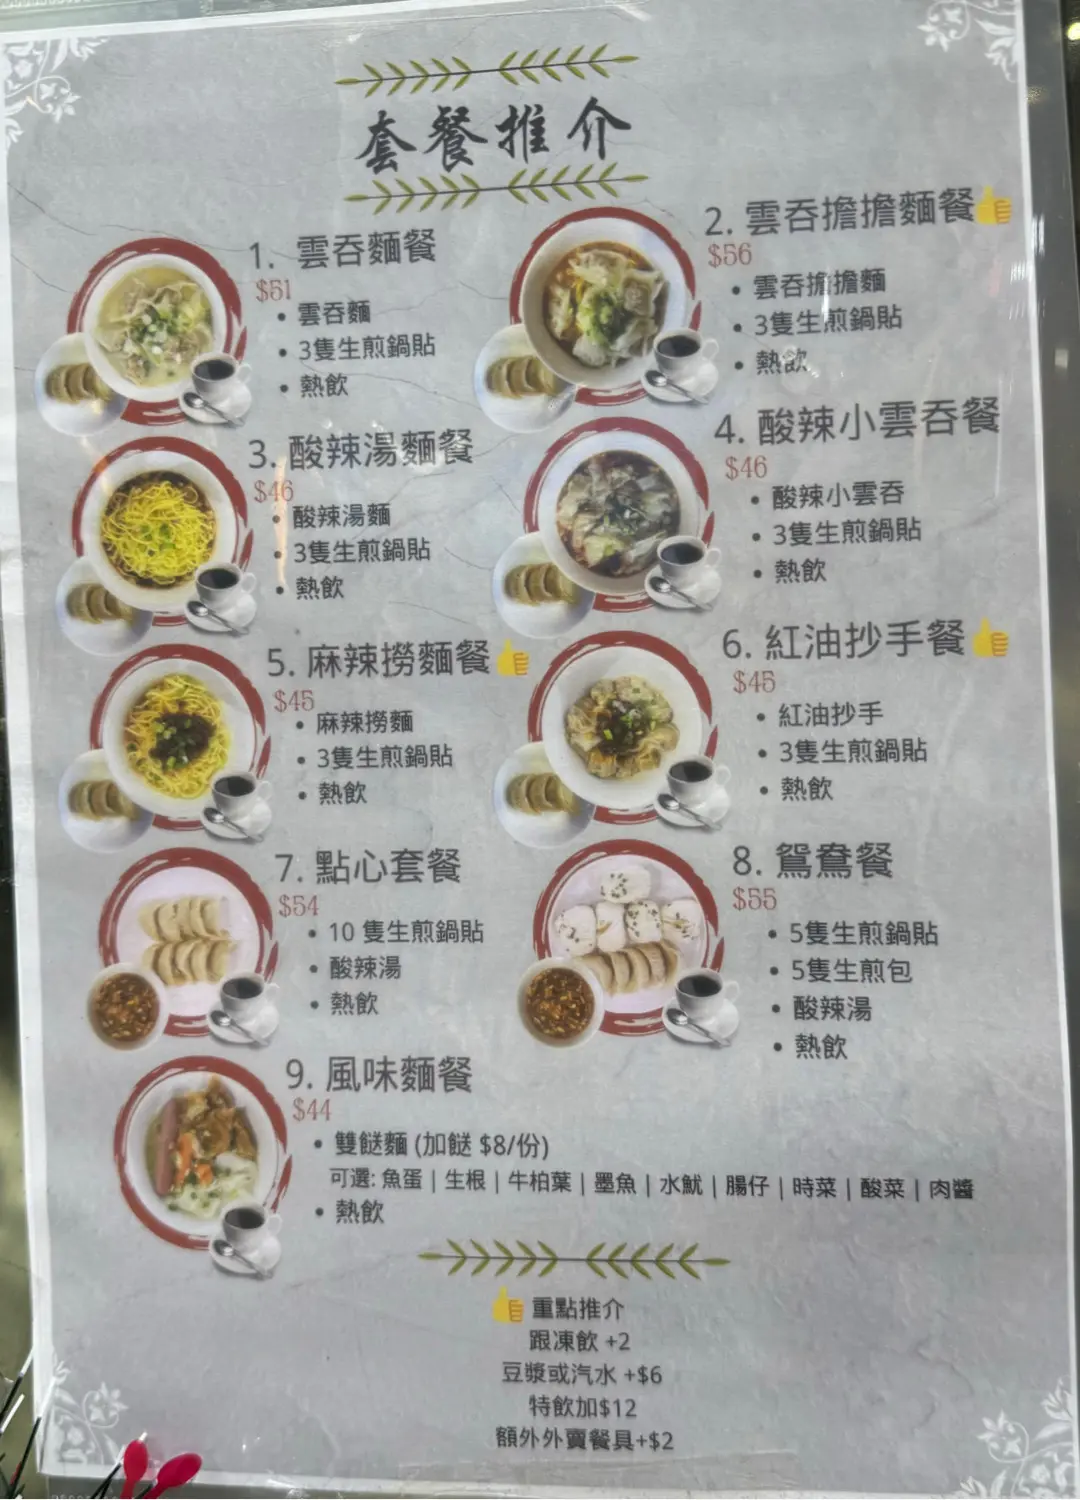 套餐推介
1. 雲吞麵餐
$51
• 雲吞麵
• 3隻生煎鍋貼
• 熱飲
2. 雲吞擔擔麵餐
$56
• 雲吞擔擔麵
• 3隻生煎鍋貼
• 熱飲
3. 酸辣湯麵餐
$46
• 酸辣湯麵
• 3隻生煎鍋貼
• 熱飲
4. 酸辣小雲吞餐
$46
• 酸辣小雲吞
• 3隻生煎鍋貼
• 熱飲
5. 麻辣撈麵餐
$45
• 麻辣撈麵
• 3隻生煎鍋貼
• 熱飲
6. 紅油抄手餐
$45
• 紅油抄手
• 3隻生煎鍋貼
• 熱飲
7. 點心套餐
$54
• 10 隻生煎鍋貼
• 酸辣湯
• 熱飲
8. 鴛鴦餐
$55
• 5隻生煎鍋貼
• 5隻生煎包
• 酸辣湯
• 熱飲
9. 風味麵餐
$44
• 雙餸麵 (加餸 $8/份)
可選: 魚蛋 | 生根 | 牛柏葉 | 墨魚 | 水魷 | 腸仔 | 時菜 | 酸菜 | 肉醬
• 熱飲
重點推介
跟凍飲 +2
豆漿或汽水 +$6
特飲加$12
額外外賣餐具+$2